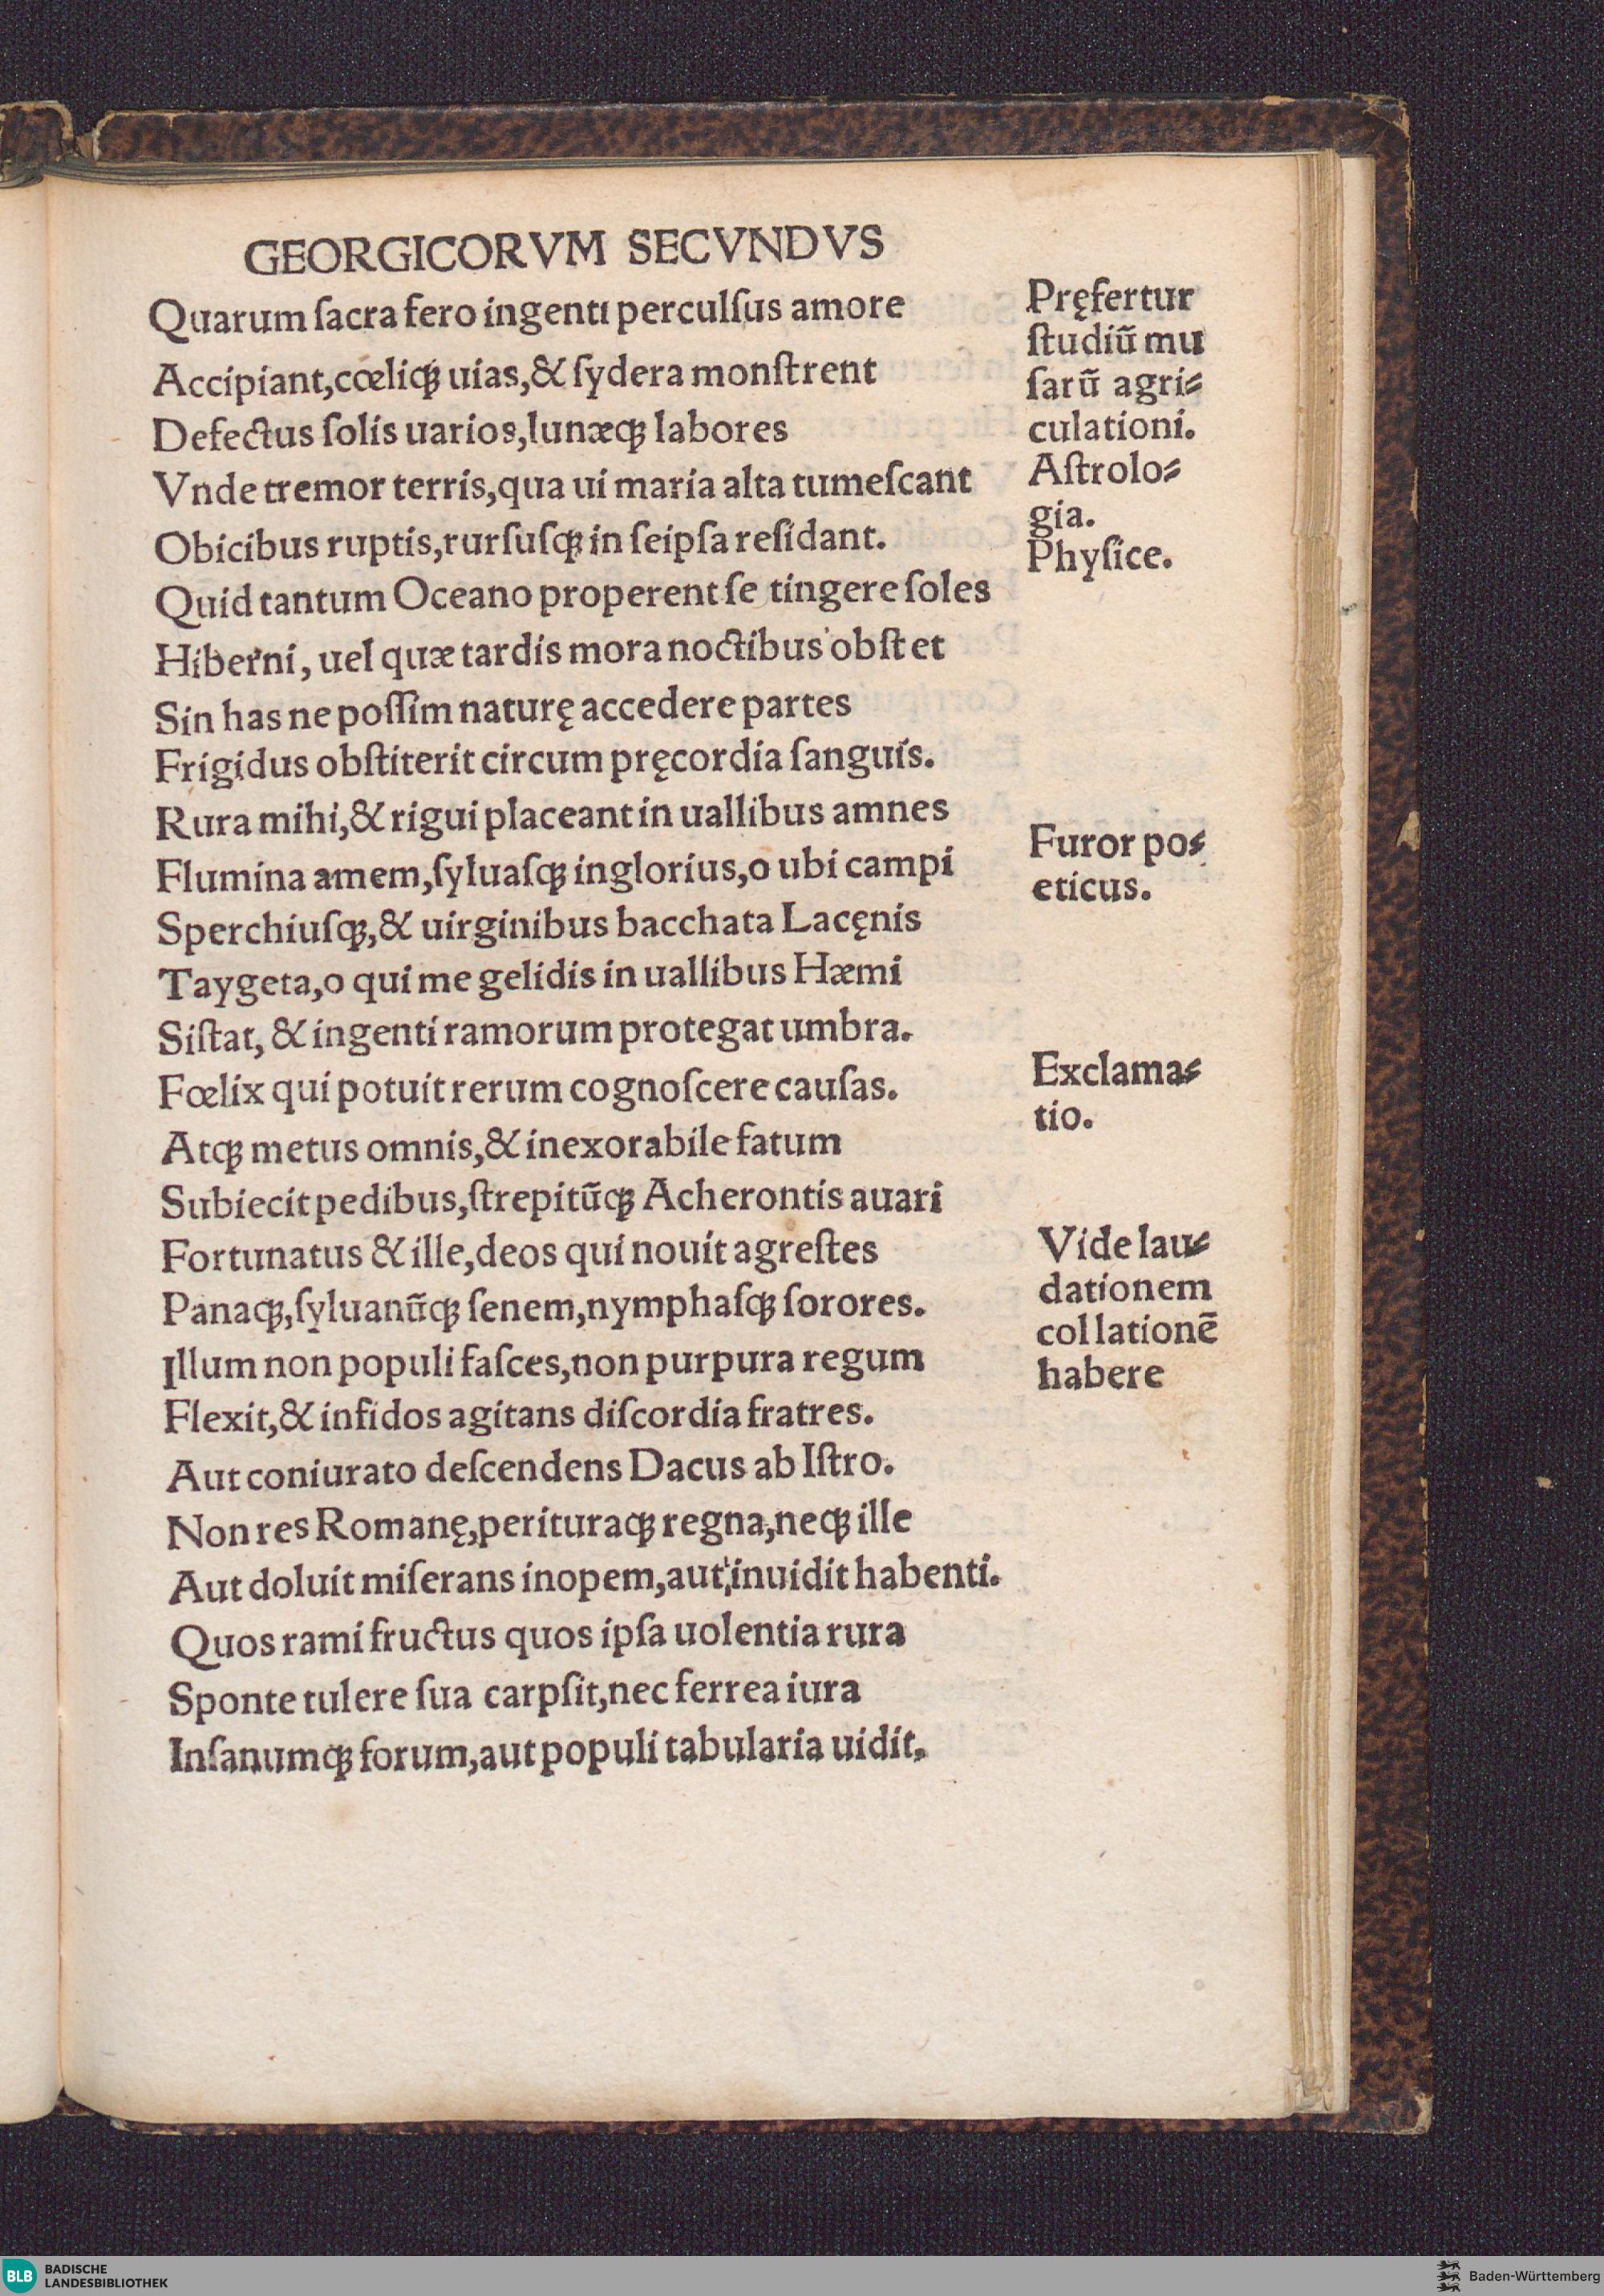 GEORGICORVM SECVNDVS
Quarum ſacra fero ingenti perculſus amore
Accipiant,cœliqꝫ uias,& ſydera monſtrent
Defectus ſolis uarios,lunæqꝫ labores
Vnde tremor terris,qua ui maria alta tumeſcant
Obicibus ruptis,rurſuſqꝫ in ſeipſa reſidant.
Quid tantum Oceano properent ſe tingere ſoles
Hiberni, uel quæ tardis mora noctibus obſtet
Sin has ne poſſim naturę accedere partes
Frigidus obſtiterit circum pręcordia ſanguis.
Rura mihi,& rigui placeant in uallibus amnes
Flumina amem,ſyluaſqꝫ inglorius,o ubi campi
Sperchiuſqꝫ,& uirginibus bacchata Lacęnis
Taygeta,o qui me gelidis in uallibus Hæmi
Siſtat, & ingenti ramorum protegat umbra.
Fœlix qui potuit rerum cognoſcere cauſas.
Atqꝫ metus omnis,& inexorabile fatum
Subiecit pedibus,ſtrepitūqꝫ Acherontis auari
Fortunatus & ille,deos qui nouit agreſtes
Panaqꝫ,ſyluanūqꝫ ſenem,nymphaſqꝫ ſorores.
Illum non populi faſces,non purpura regum
Flexit,& infidos agitans diſcordia fratres.
Aut coniurato deſcendens Dacus ab Iſtro.
Non res Romanę,perituraqꝫ regna,neqꝫ ille
Aut doluit miſerans inopem,aut inuidit habenti.
Quos rami fructus quos ipſa uolentia rura
Sponte tulere ſua carpſit,nec ferrea iura
Inſanumqꝫ forum,aut populi tabularia uidit,
Pręfertur
ſtudiū mu
ſarū agri⸗
culationi.
Aſtrolo⸗
gia.
Phyſice.
Furor po⸗
eticus.
Exclama⸗
tio.
Vide lau⸗
dationem
collationē
habere
BLB BADISCHE
LANDESBIBLIOTHEK
Baden-Württemberg